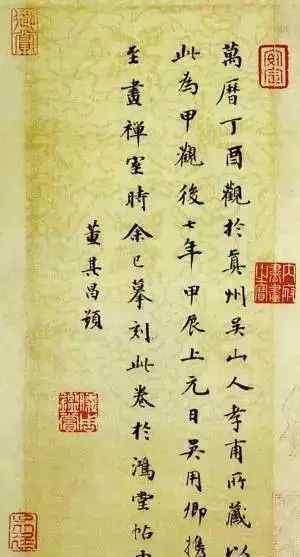 萬曆丁酉觀於真州吳山人孝甫所藏以
此為甲觀後七年甲辰上元日吳用卿攜
至畫禪室時余已摹刻此卷於鴻堂帖中
董其昌題
內府書畫之寶
御賞